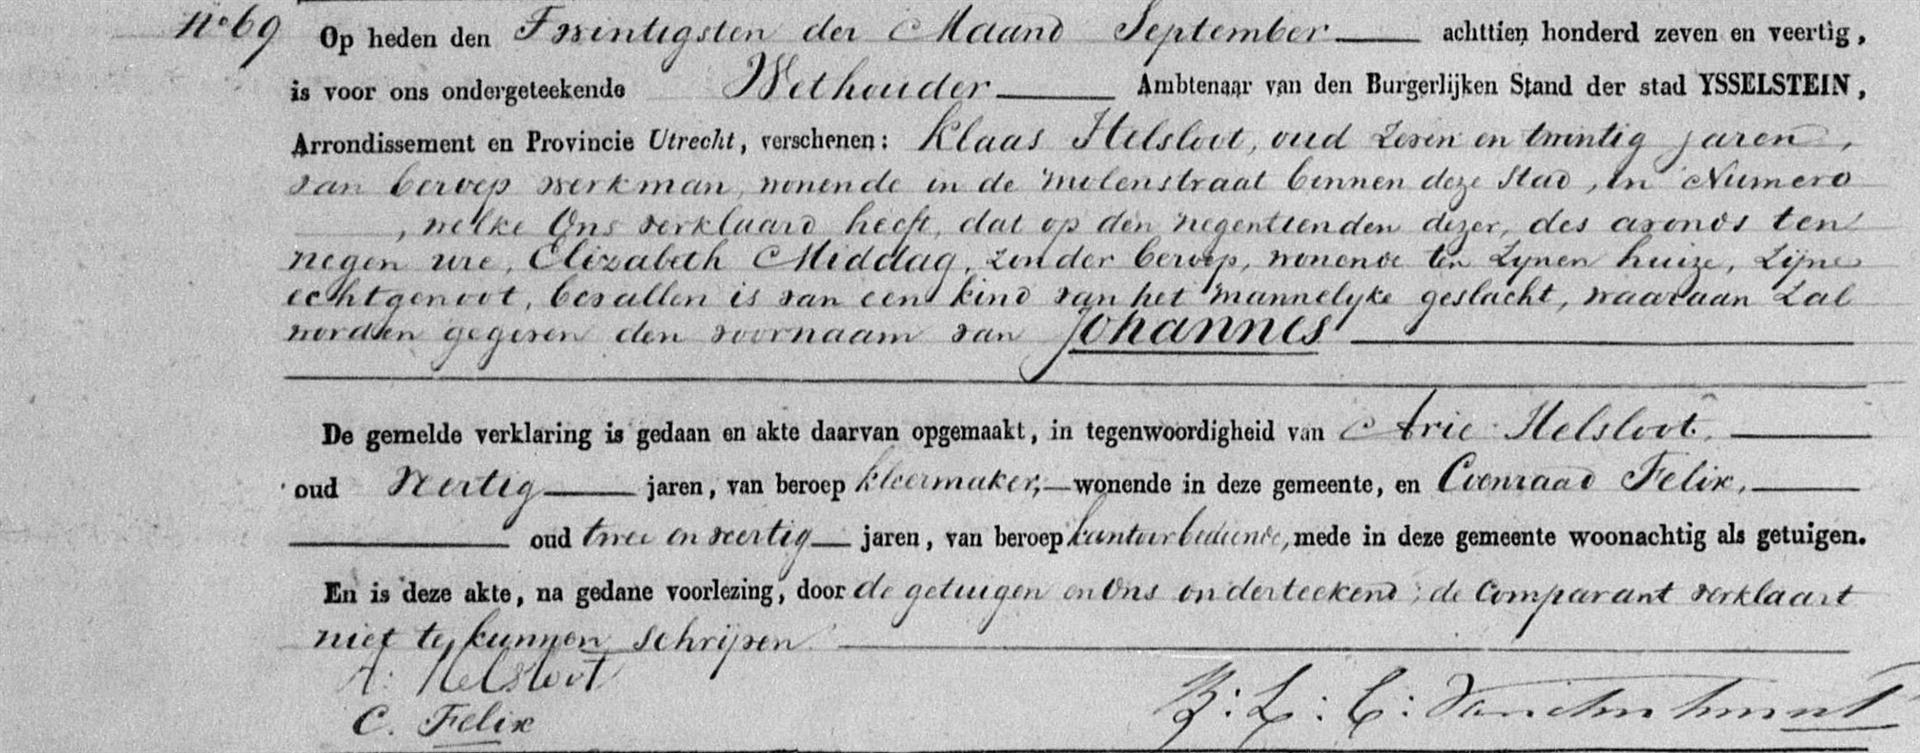 No 69 Op heden den Twintigsten der Maand September achttien honderd zeven en veertig,
is voor ons ondergeteekende Wethouder Ambtenaar van den Burgerlijken Stand der stad YSSELSTEIN,
Arrondissement en Provincie Utrecht, verschenen: Klaas Helsloot, oud zeven en twintig jaren,
van beroep werkman, wonende in de Molenstraat binnen deze stad, in Numero
, welke Ons verklaard heeft, dat op den negentienden dezer, des avonds ten
negen ure, Elizabeth Middag, zonder beroep, wonende ten zynen huize, zijne
echtgenoot, bevallen is van een kind van het mannelyke geslacht, waaraan zal
worden gegeven den voornaam van Johannes
De gemelde verklaring is gedaan en akte daarvan opgemaakt, in tegenwoordigheid van Arie Helsloot,
oud Veertig jaren, van beroep kleermaker, wonende in deze gemeente, en Coenraad Felix,
oud twee en veertig jaren, van beroep kantoorbediende, mede in deze gemeente woonachtig als getuigen.
En is deze akte, na gedane voorlezing, door de getuigen en Ons onderteekend; de Comparant verklaart
niet te kunnen schrijven.
A: Helsloot
C. Felix